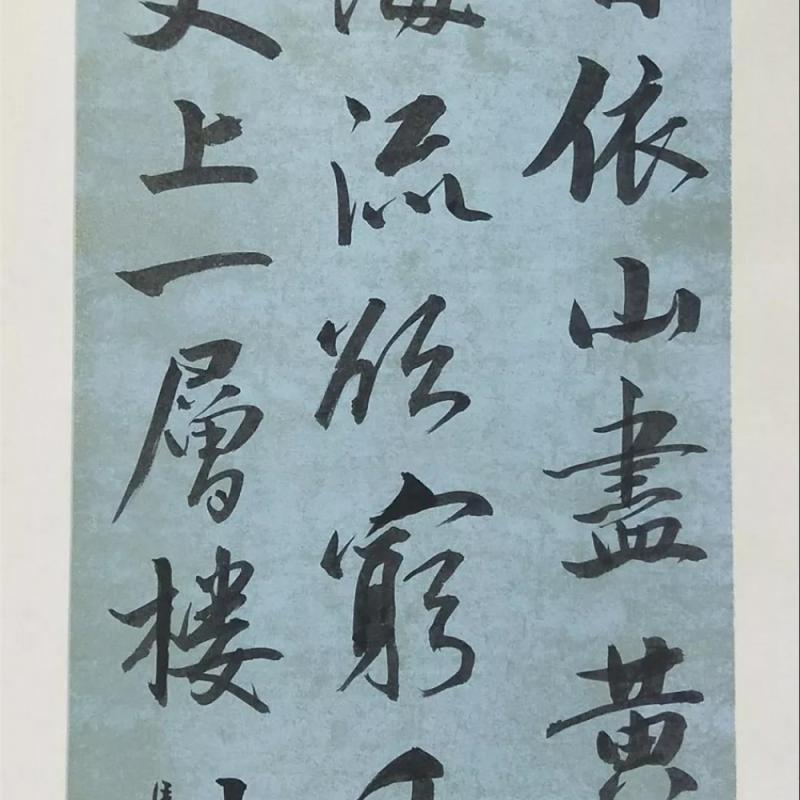 依山盡黃
海流欲窮千
更上一層樓